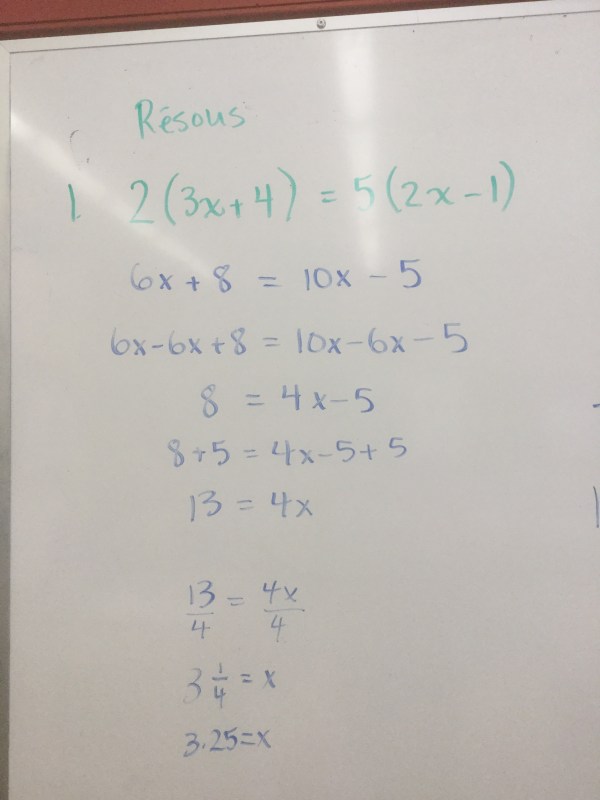 Résous
1. 2(3x+4) = 5(2x-1)
6x + 8 = 10x - 5
6x-6x+8 = 10x-6x-5
8 = 4x-5
8+5 = 4x-5+5
13 = 4x
13/4 = 4x/4
3 1/4 = x
3.25=x